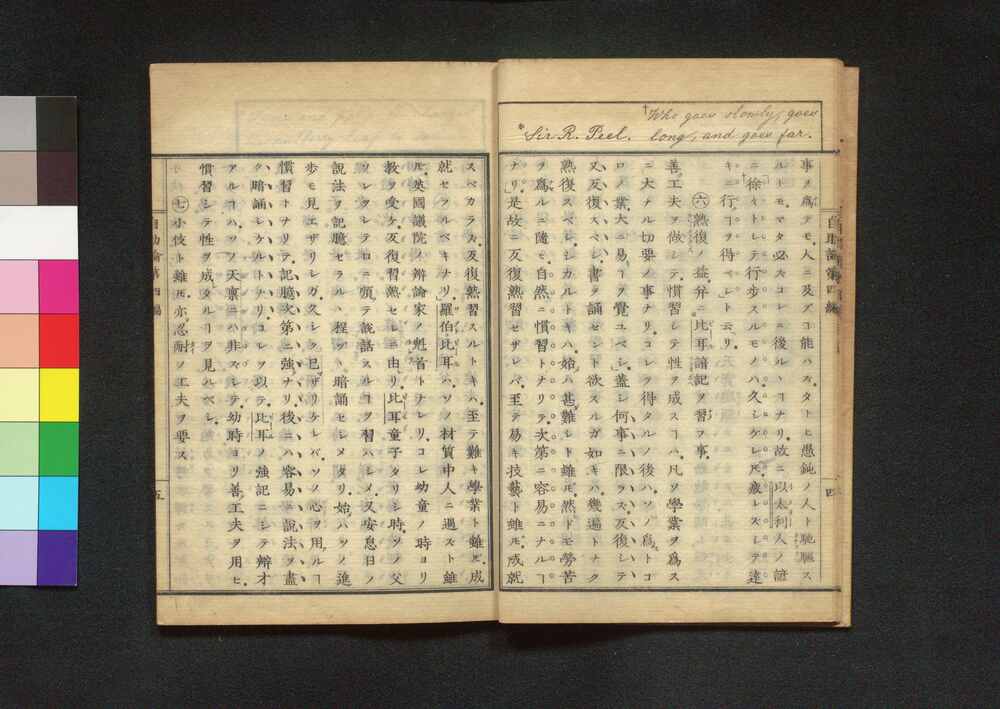 †Who goes slowly, goes
long, and goes far.
*Sir R. Peel.
事ヲ爲テモ。人ニ及フヿ能ハス。タトヒ愚鈍ノ人ト馳驅ス
ルトモ。マタ必スコレニ後ルヽヿナリ。故ニ以太利人ノ諺
ニ徐々トシテ行歩スルモノハ。久シケレ𪜈。疲レスシテ。遠
キニ行ヿヲ得ベシト云リ。
㊅熟復ノ益。弁ニ比耳諳記ヲ習フ事。
善工夫ヲ做シテ。慣習シテ性ヲ成スヿハ。凡ソ學業ヲ爲ス
ニ大ナル切要ノ事ナリ。コレヲ得タルノ後ハ。ソノ爲トコ
ロノ業。大ニ易ヿヲ覺ユベシ。蓋シ何事ニ限ラス。反復シテ
又反復スベシ。書ヲ誦セント欲スルガ如キハ。幾遍トナク
熟復スベシ。シカルトキハ。始ハ甚難シト雖𪜈。然ド𪜈勞苦
ヲ爲ルニ隨モ。自然ニ慣習トナリテ。次第ニ容易ニナルヿ
ナリ。是故ニ反復熟習セザレバ。至テ易キ技藝ト雖𪜈。成就
スベカラス。反復熟習スルトキハ。至テ難キ學業ト雖𪜈。成
就セラルベキナリ。羅伯比耳ハ。ソノ材質中人ニ過スト雖
𪜈。英國議院ノ辨論家ノ魁首トナレリ。コレ幼童ノ時ヨリ
教ヲ受ケ。反復習熟セシニ由リ。比耳童子タリシ時。ソノ父
ソレヲシテ
ロニ
テ説話スルヿヲ習ハシメ。又安息日ノ
説法ヲ記臆セラルヽ程ヅヽ。暗誦セシメタリ。始ハソノ進
歩モ見エザリシガ。久シク已ザリケレバ。ソノ心ヲ用ルヿ
慣習トナリテ。記臆次第ニ強ナリ。後ニハ容易ニ説法ヲ盡
ク暗誦シケルトナリ。コレヲ以テ。比耳ノ強記ニシテ辨才
アルヿハ。ソノ天禀ニハ非スシテ。幼時ヨリ善工夫ヲ用ヒ。
慣習シテ性ヲ成タルヿヲ見ルベシ。
㊆小伎ト雖𪜈。亦忍耐ノ工夫ヲ要ス
自助論第四編
四
自助論第四編
五